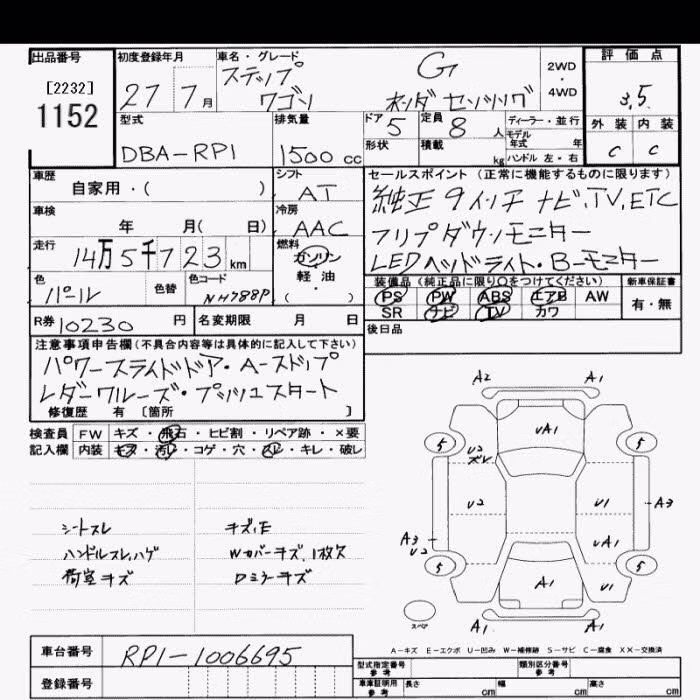 出品番号
[2232]
1152
初度登録年月
27 7月
車名・グレード
ステップ G
ワゴン ホンダ センシング
2WD
・
4WD
評価点
3.5
型式
DBA-RP1
排気量
1500 cc
ドア 5
定員 8 人
形状
積載 kg
ディーラー・並行
モデル年式 年
ハンドル 左・右
外装 内装
C C
車歴
自家用・( )
シフト
AT
車検
年 月( 日)
冷房
AAC
走行
14万5千723 km
燃料
ガソリン
軽・油
( )
色
パール
色替
色コード
NH788P
R券 10230 円
名変期限 月 日
セールスポイント(正常に機能するものに限ります)
純正9インチナビ,TV,ETC
フリップダウンモニター
LEDヘッドライト・Bーモニター
装備品(純正品に限り○をつけてください)
PS PW ABS エアB AW
SR ナビ TV カワ
新車保証書
有・無
後日品
注意事項申告欄(不具合内容等は具体的に記入して下さい)
パワースライドドア・Aーストップ
レダークルーズ・プッシュスタート
修復歴 有 〔箇所 〕
検査員 FW キズ・飛石・ヒビ割・リペア跡・×要
記入欄 内装 キズ・汚レ・コゲ・穴・スレ・キレ・破レ
シートスレ
ハンドルスレ,ハゲ
荷室キズ
キズ,E
Wカバーキズ,1枚欠
Dミラーキズ
A2 A1
UA1
5 5
U2
ズレ
U2 U1
A3
A3
U2
UA1
5 5
A1 U1
スペア
A1 A1
A-キズ E-エクボ U-凹み W-補修跡 S-サビ C-腐食 XX-交換済
車台番号
RP1-1006695
登録番号
型式指定番号
参考
類別区分番号
参考
車庫証明用
参考
長さ cm 幅 cm 高さ cm